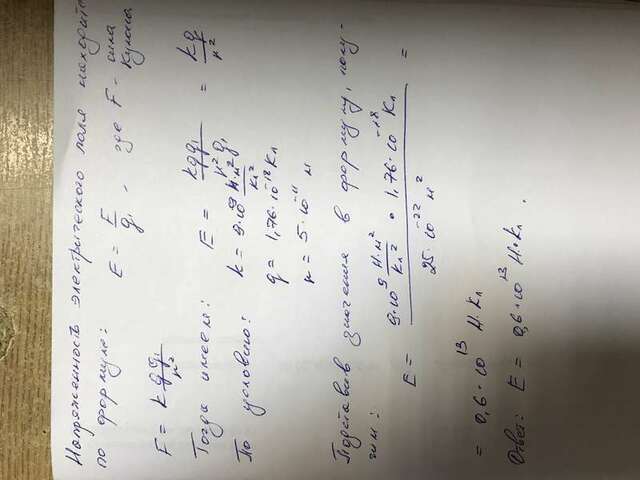 Напряженность электрического поля находится
по формуле: E = F/q₁, где F - сила Кулона
F = k qq₁/r²
Тогда имеем: E = kqq₁/r²q₁ = kq/r²
По условию: k = 9·10⁹ Н·м²/Кл²
q = 1,76·10⁻¹⁸ Кл
r = 5·10⁻¹¹ м
Подставив значения в формулу, полу-
чим:
E = 9·10⁹ Н·м²/Кл² · 1,76·10⁻¹⁸ Кл / 25·10⁻²² м² =
= 0,6·10¹³ Н·Кл
Ответ: E = 0,6·10¹³ Н·Кл.